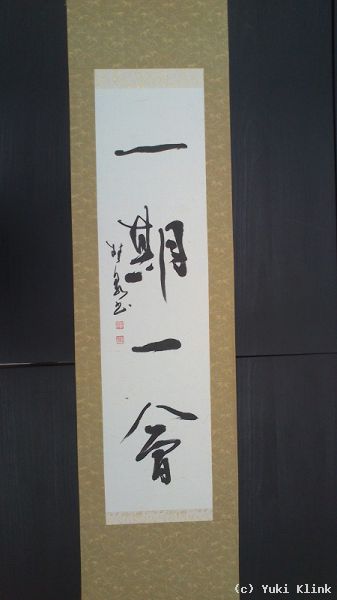 一期一會
(c) Yuki Klink